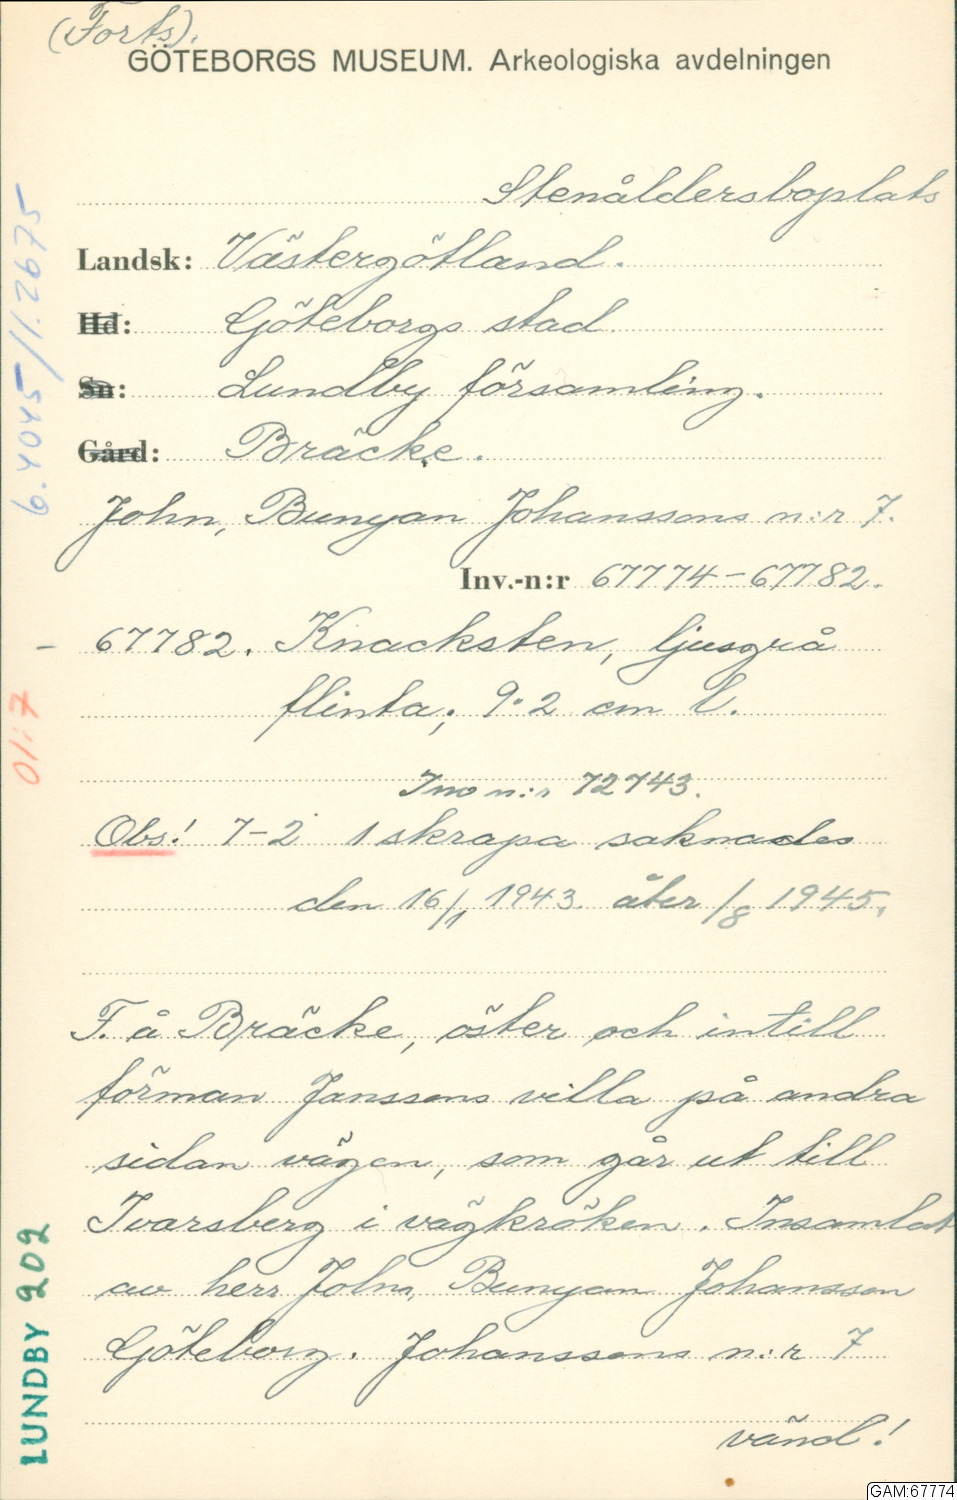 (Forts).
GÖTEBORGS MUSEUM. Arkeologiska avdelningen
Stenåldersboplats
Landsk: Västergötland.
Hd: Göteborgs stad.
Sn: Lundby församling.
Gård: Bräcke.
John, Bunyan Johanssons n:r 7.
Inv.-n:r 67774-67782.
67782. Knacksten, ljusgrå
flinta; 9·2 cm l.
Inv n:r 72743.
Obs! 7-2 1 skrapa saknades
den 16/1 1943. åter /8 1945.
F. å Bräcke, öster och intill
förman Janssons villa på andra
sidan vägen, som går ut till
Ivarsberg i vägkröken. Insamlat
av herr John, Bunyan Johansson
Göteborg. Johanssons n:r 7
vänd!
6.4045/1.2675
01:7
LUNDBY 202
GAM:67774